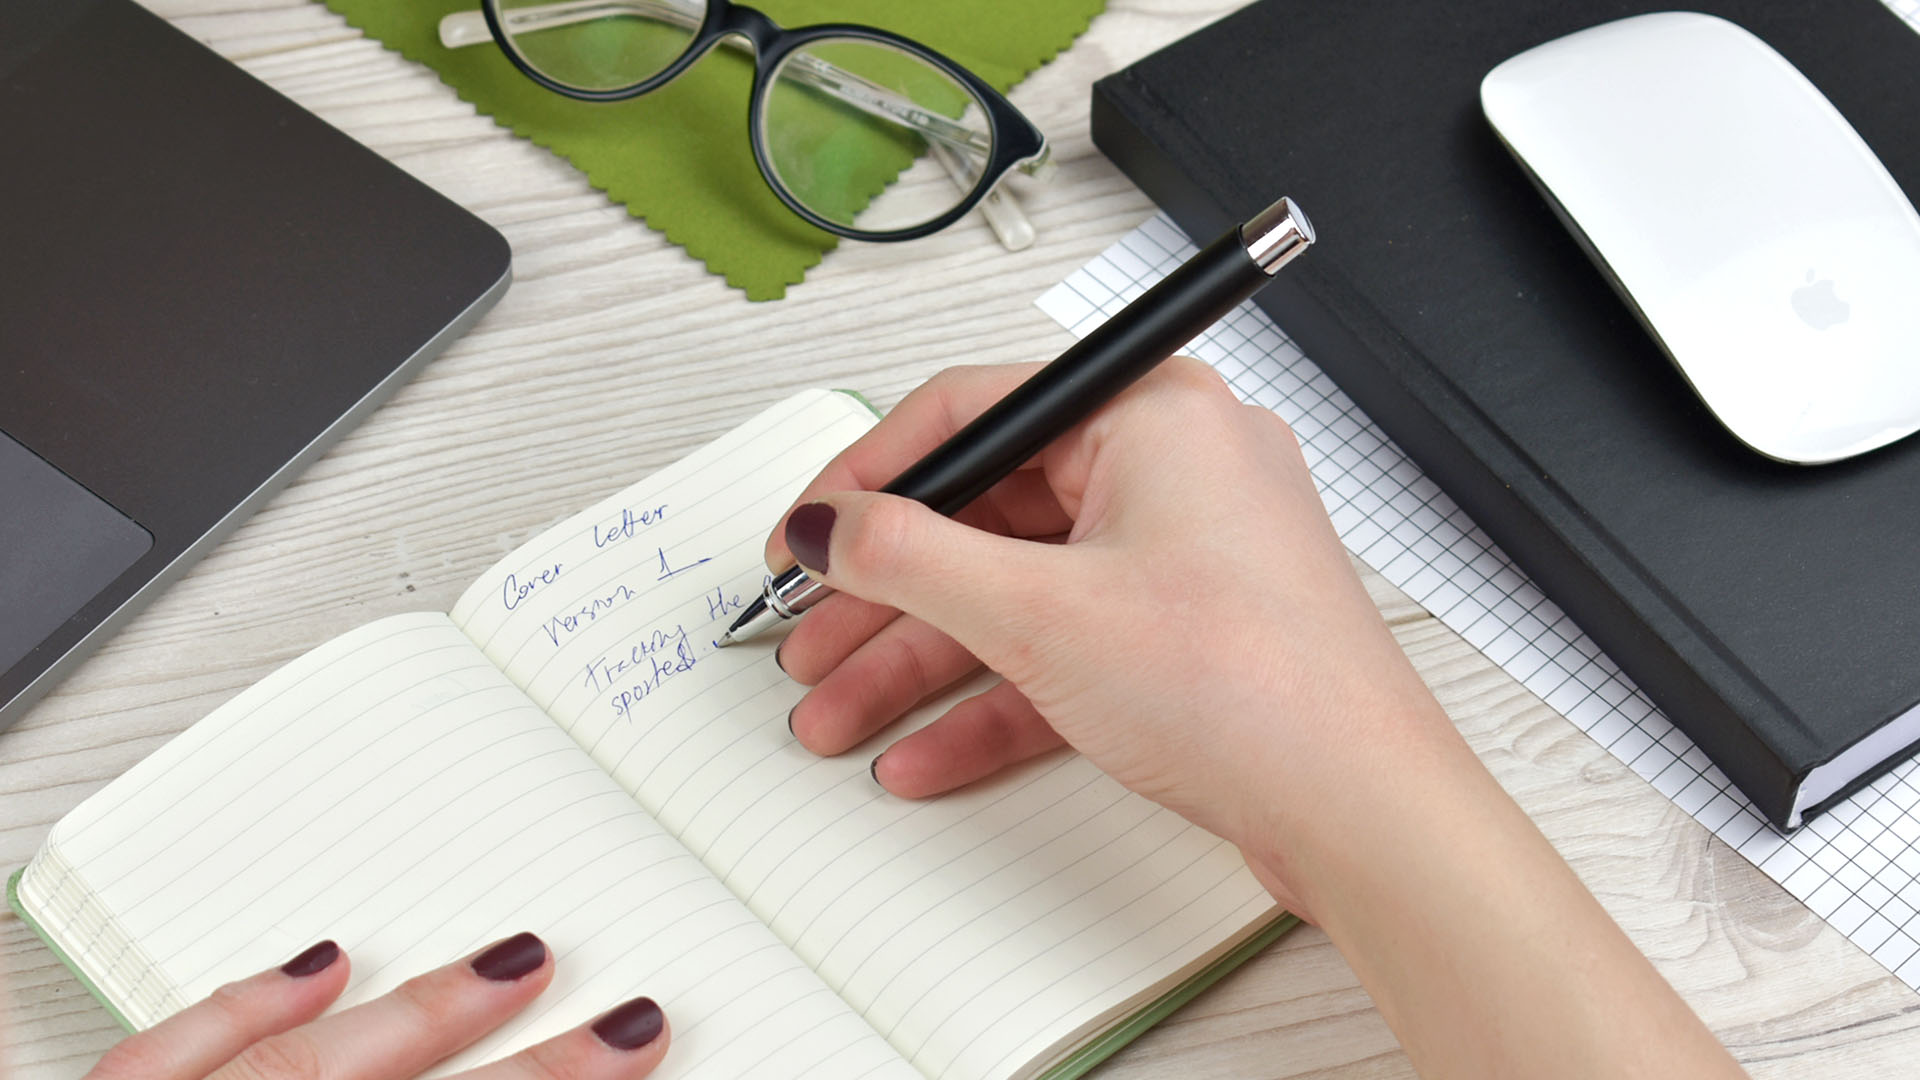 Cover letter
Version 1
Tracking the
sported.